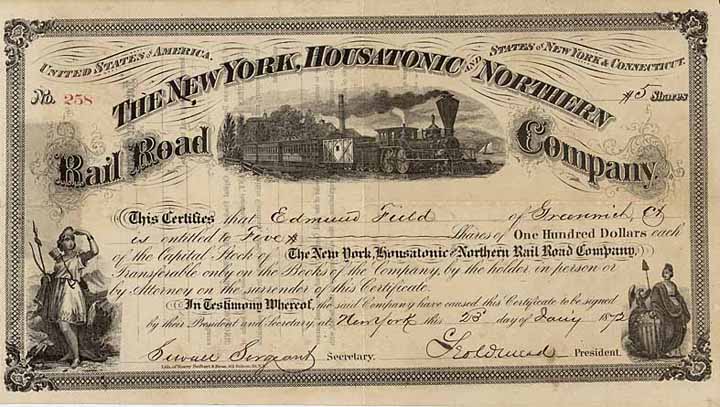 UNITED STATES OF AMERICA.
STATES OF NEW YORK & CONNECTICUT.
No. 258
THE NEW YORK, HOUSATONIC AND NORTHERN
5 Shares
Rail Road Company.
This Certifies that Edmund Field of Greenwich Ct
is entitled to Five Shares of One Hundred Dollars each
of the Capital Stock of The New York, Housatonic and Northern Rail Road Company,
Transferable only on the Books of the Company, by the holder in person or
by Attorney on the surrender of this Certificate.
In Testimony Whereof, the said Company have caused this Certificate to be signed
by their President and Secretary at New York this 23 day of Jany 1872
Sewall Sergeant Secretary. President.